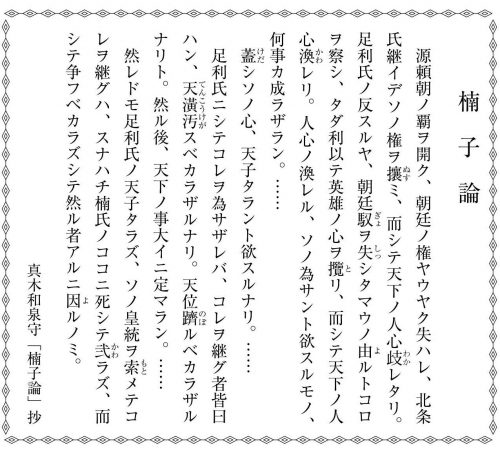 楠子論
源頼朝ノ覇ヲ開ク、朝廷ノ権ヤウヤク失ハレ、北条
氏継イデソノ権ヲ攘ミ、而シテ天下ノ人心歧レタリ。
足利氏ノ反スルヤ、朝廷馭ヲ失シタマウノ由ルトコロ
ヲ察シ、タダ利以テ英雄ノ心ヲ攬リ、而シテ天下ノ人
心渙レリ。人心ノ渙レル、ソノ為サント欲スルモノ、
何事カ成ラザラン。……
蓋シソノ心、天子タラント欲スルナリ。……
足利氏ニシテコレヲ為サザレバ、コレヲ継グ者皆曰
ハン、天潢汚スベカラザルナリ。天位躋ルベカラザル
ナリト。然ル後、天下ノ事大イニ定マラン。……
然レドモ足利氏ノ天子タラズ、ソノ皇統ヲ索メテコ
レヲ継グハ、スナハチ楠氏ノココニ死シテ弐ラズ、而
シテ争フベカラズシテ然ル者アルニ因ルノミ。
真木和泉守「楠子論」抄